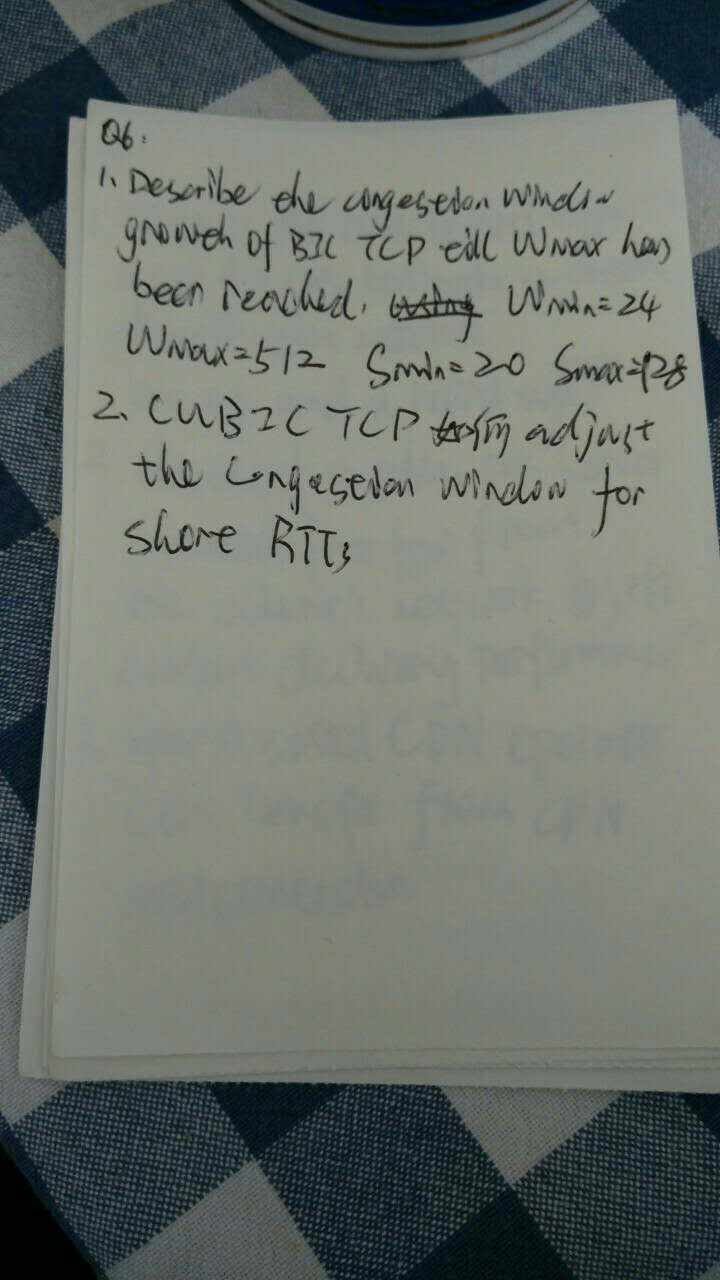 Q6:
1. Describe the congestion window
growth of BIC TCP till Wmax has
been reached. Wmin=24
Wmax=512 Smin=20 Smax=128
2. CUBIC TCP 如何 adjust
the congestion window for
short RTTs